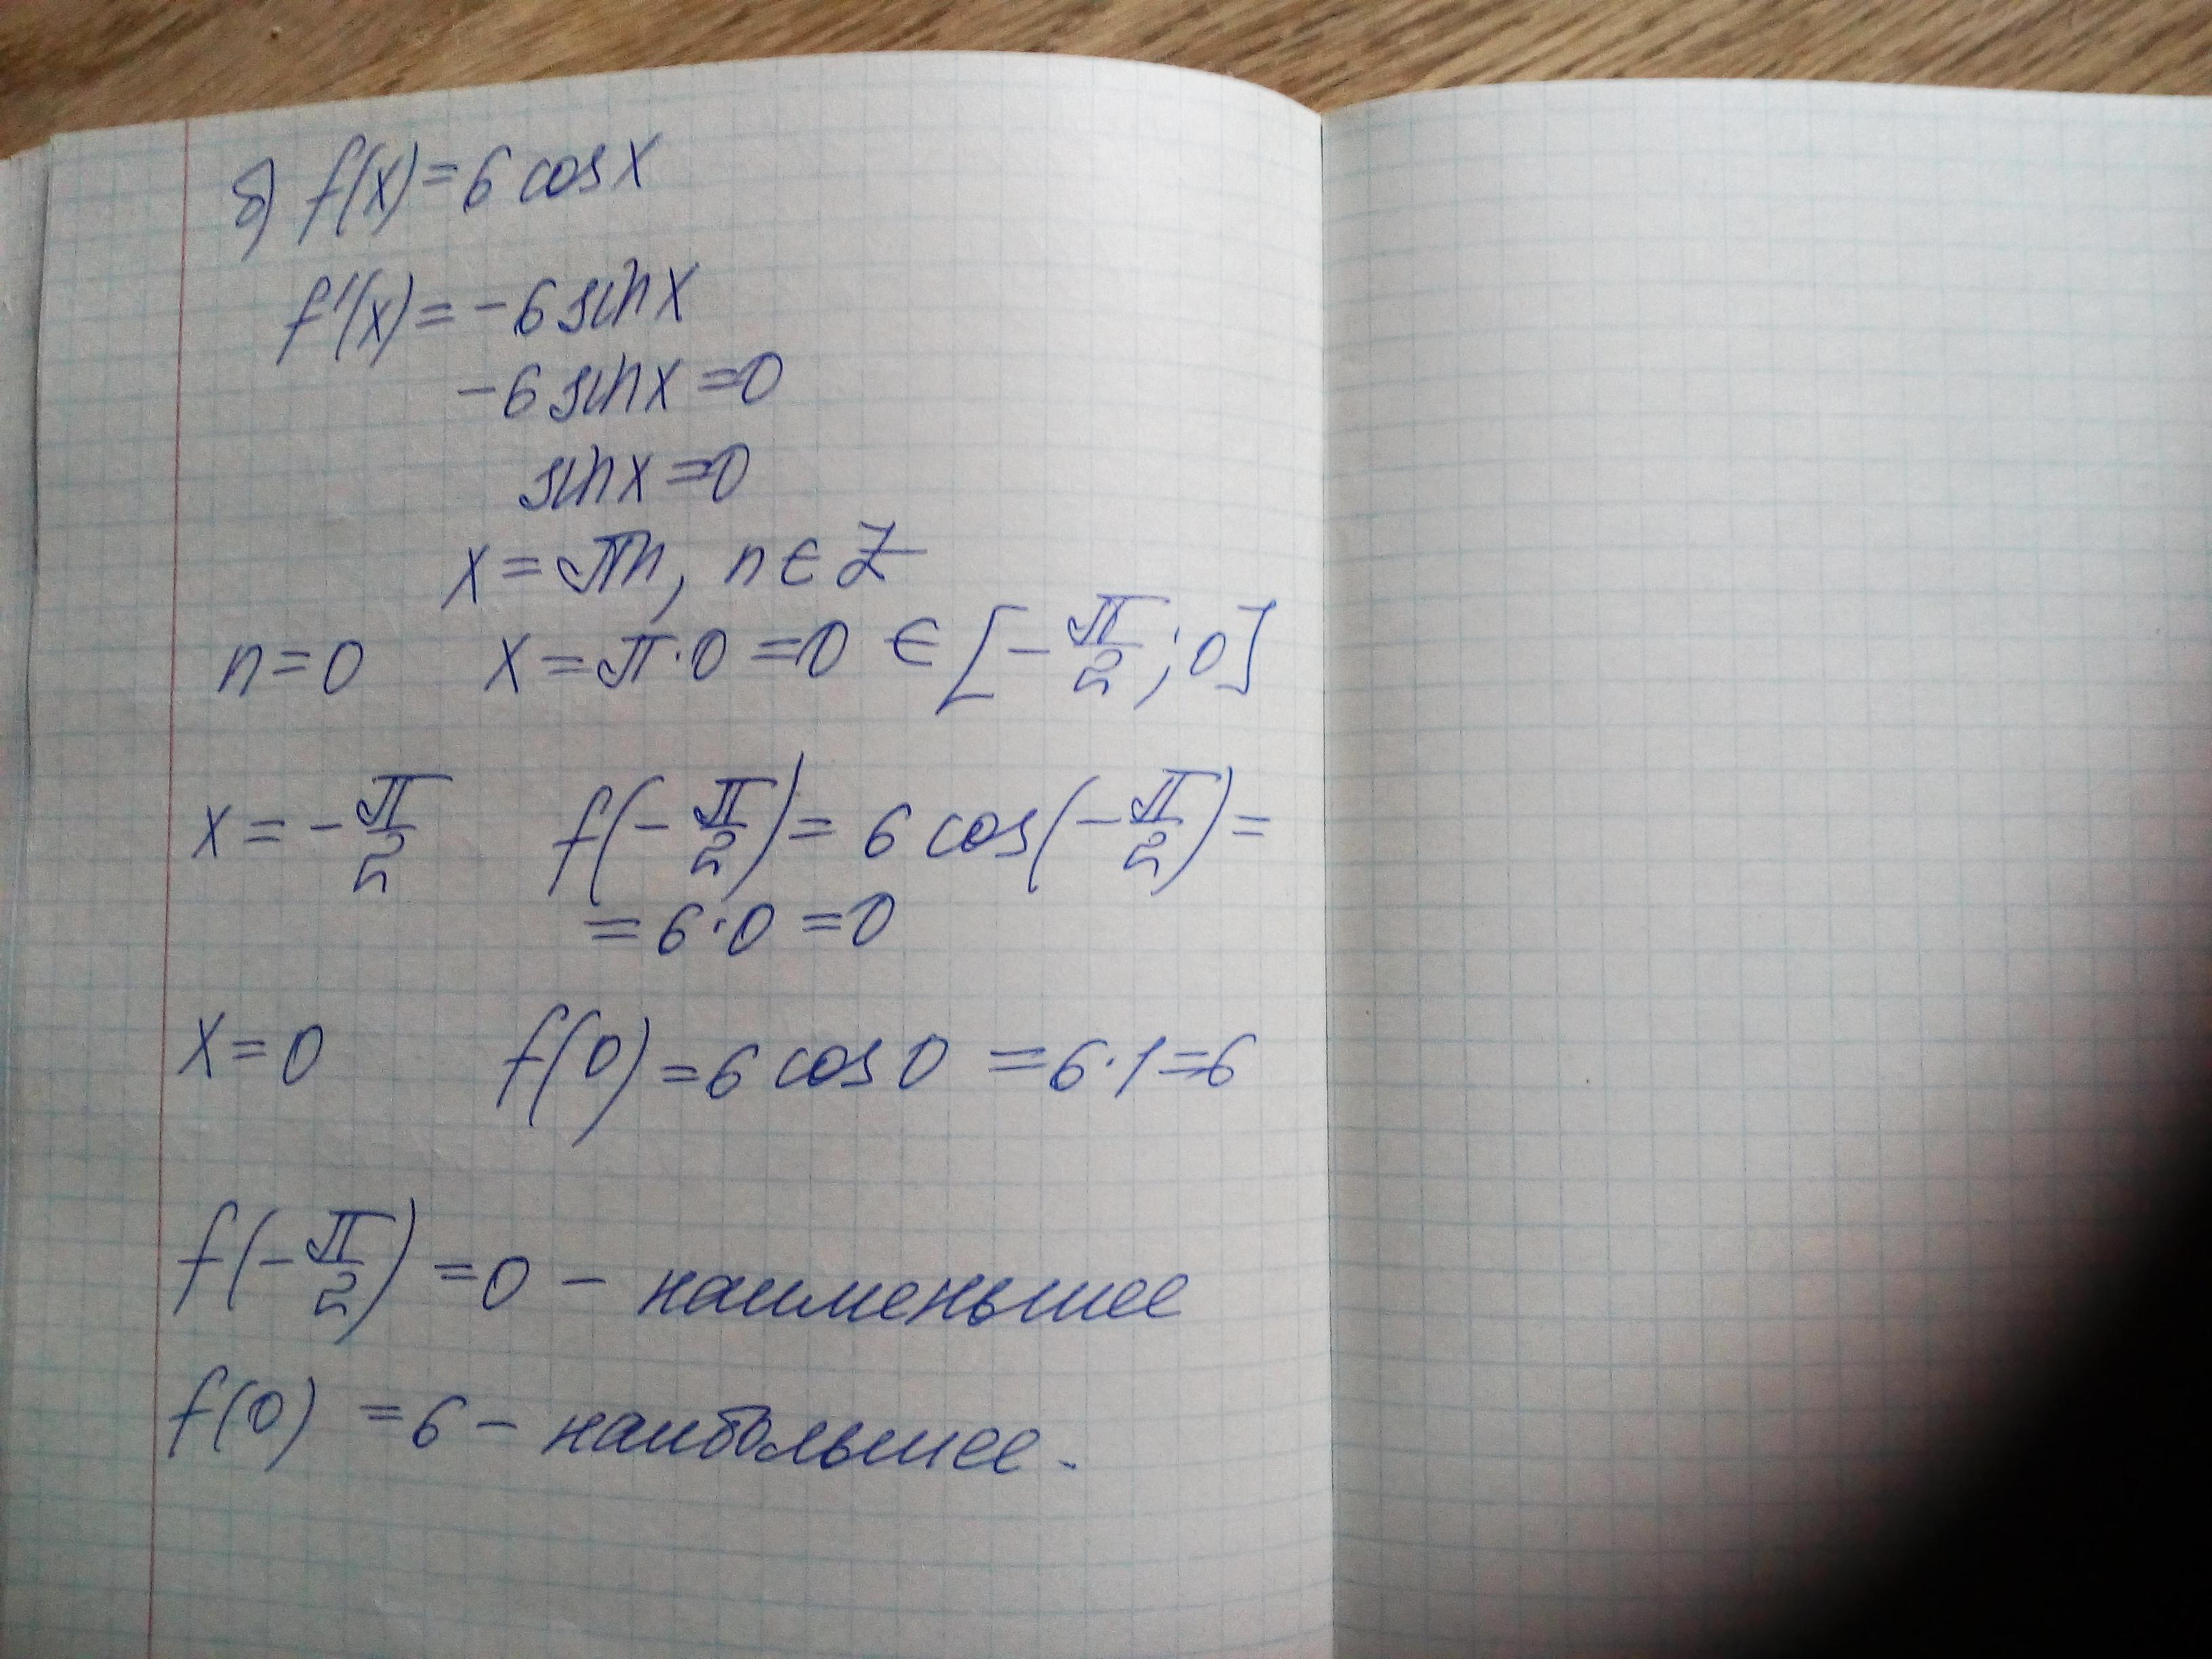 б) f(x)=6 cos x
f'(x)=-6 sin x
-6 sin x=0
sin x=0
x=πn, n∈Z
n=0 x=π·0=0 ∈ [-π/2; 0]
x=-π/2 f(-π/2)=6 cos(-π/2)=
=6·0=0
x=0 f(0)=6 cos 0=6·1=6
f(-π/2)=0 - наименьшее
f(0)=6 - наибольшее.